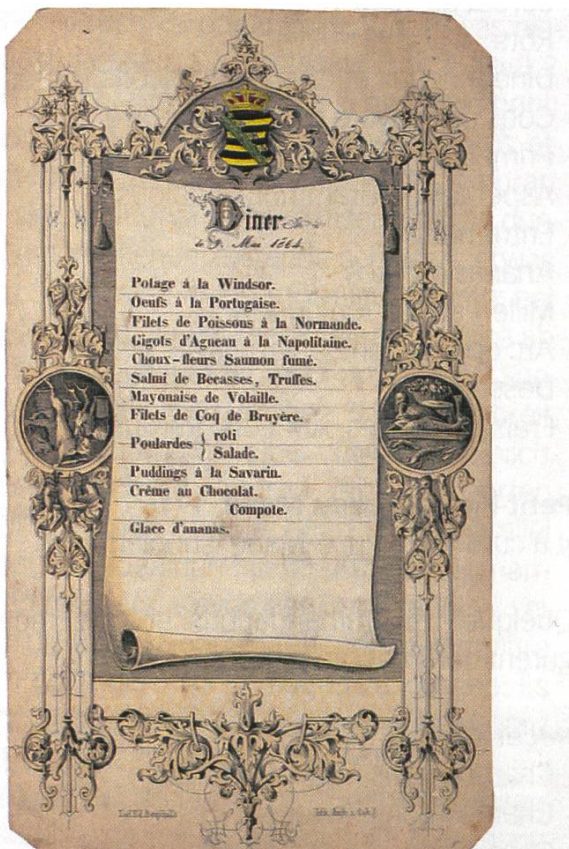 Diner
le 9. Mai 1864.
Potage à la Windsor.
Oeufs à la Portugaise.
Filets de Poissons à la Normande.
Gigots d'Agneau à la Napolitaine.
Choux-fleurs Saumon fumé.
Salmi de Becasses, Truffes.
Mayonaise de Volaille.
Filets de Coq de Bruyère.
Poulardes { roti
Salade.
Puddings à la Savarin.
Crême au Chocolat.
Compote.
Glace d'ananas.